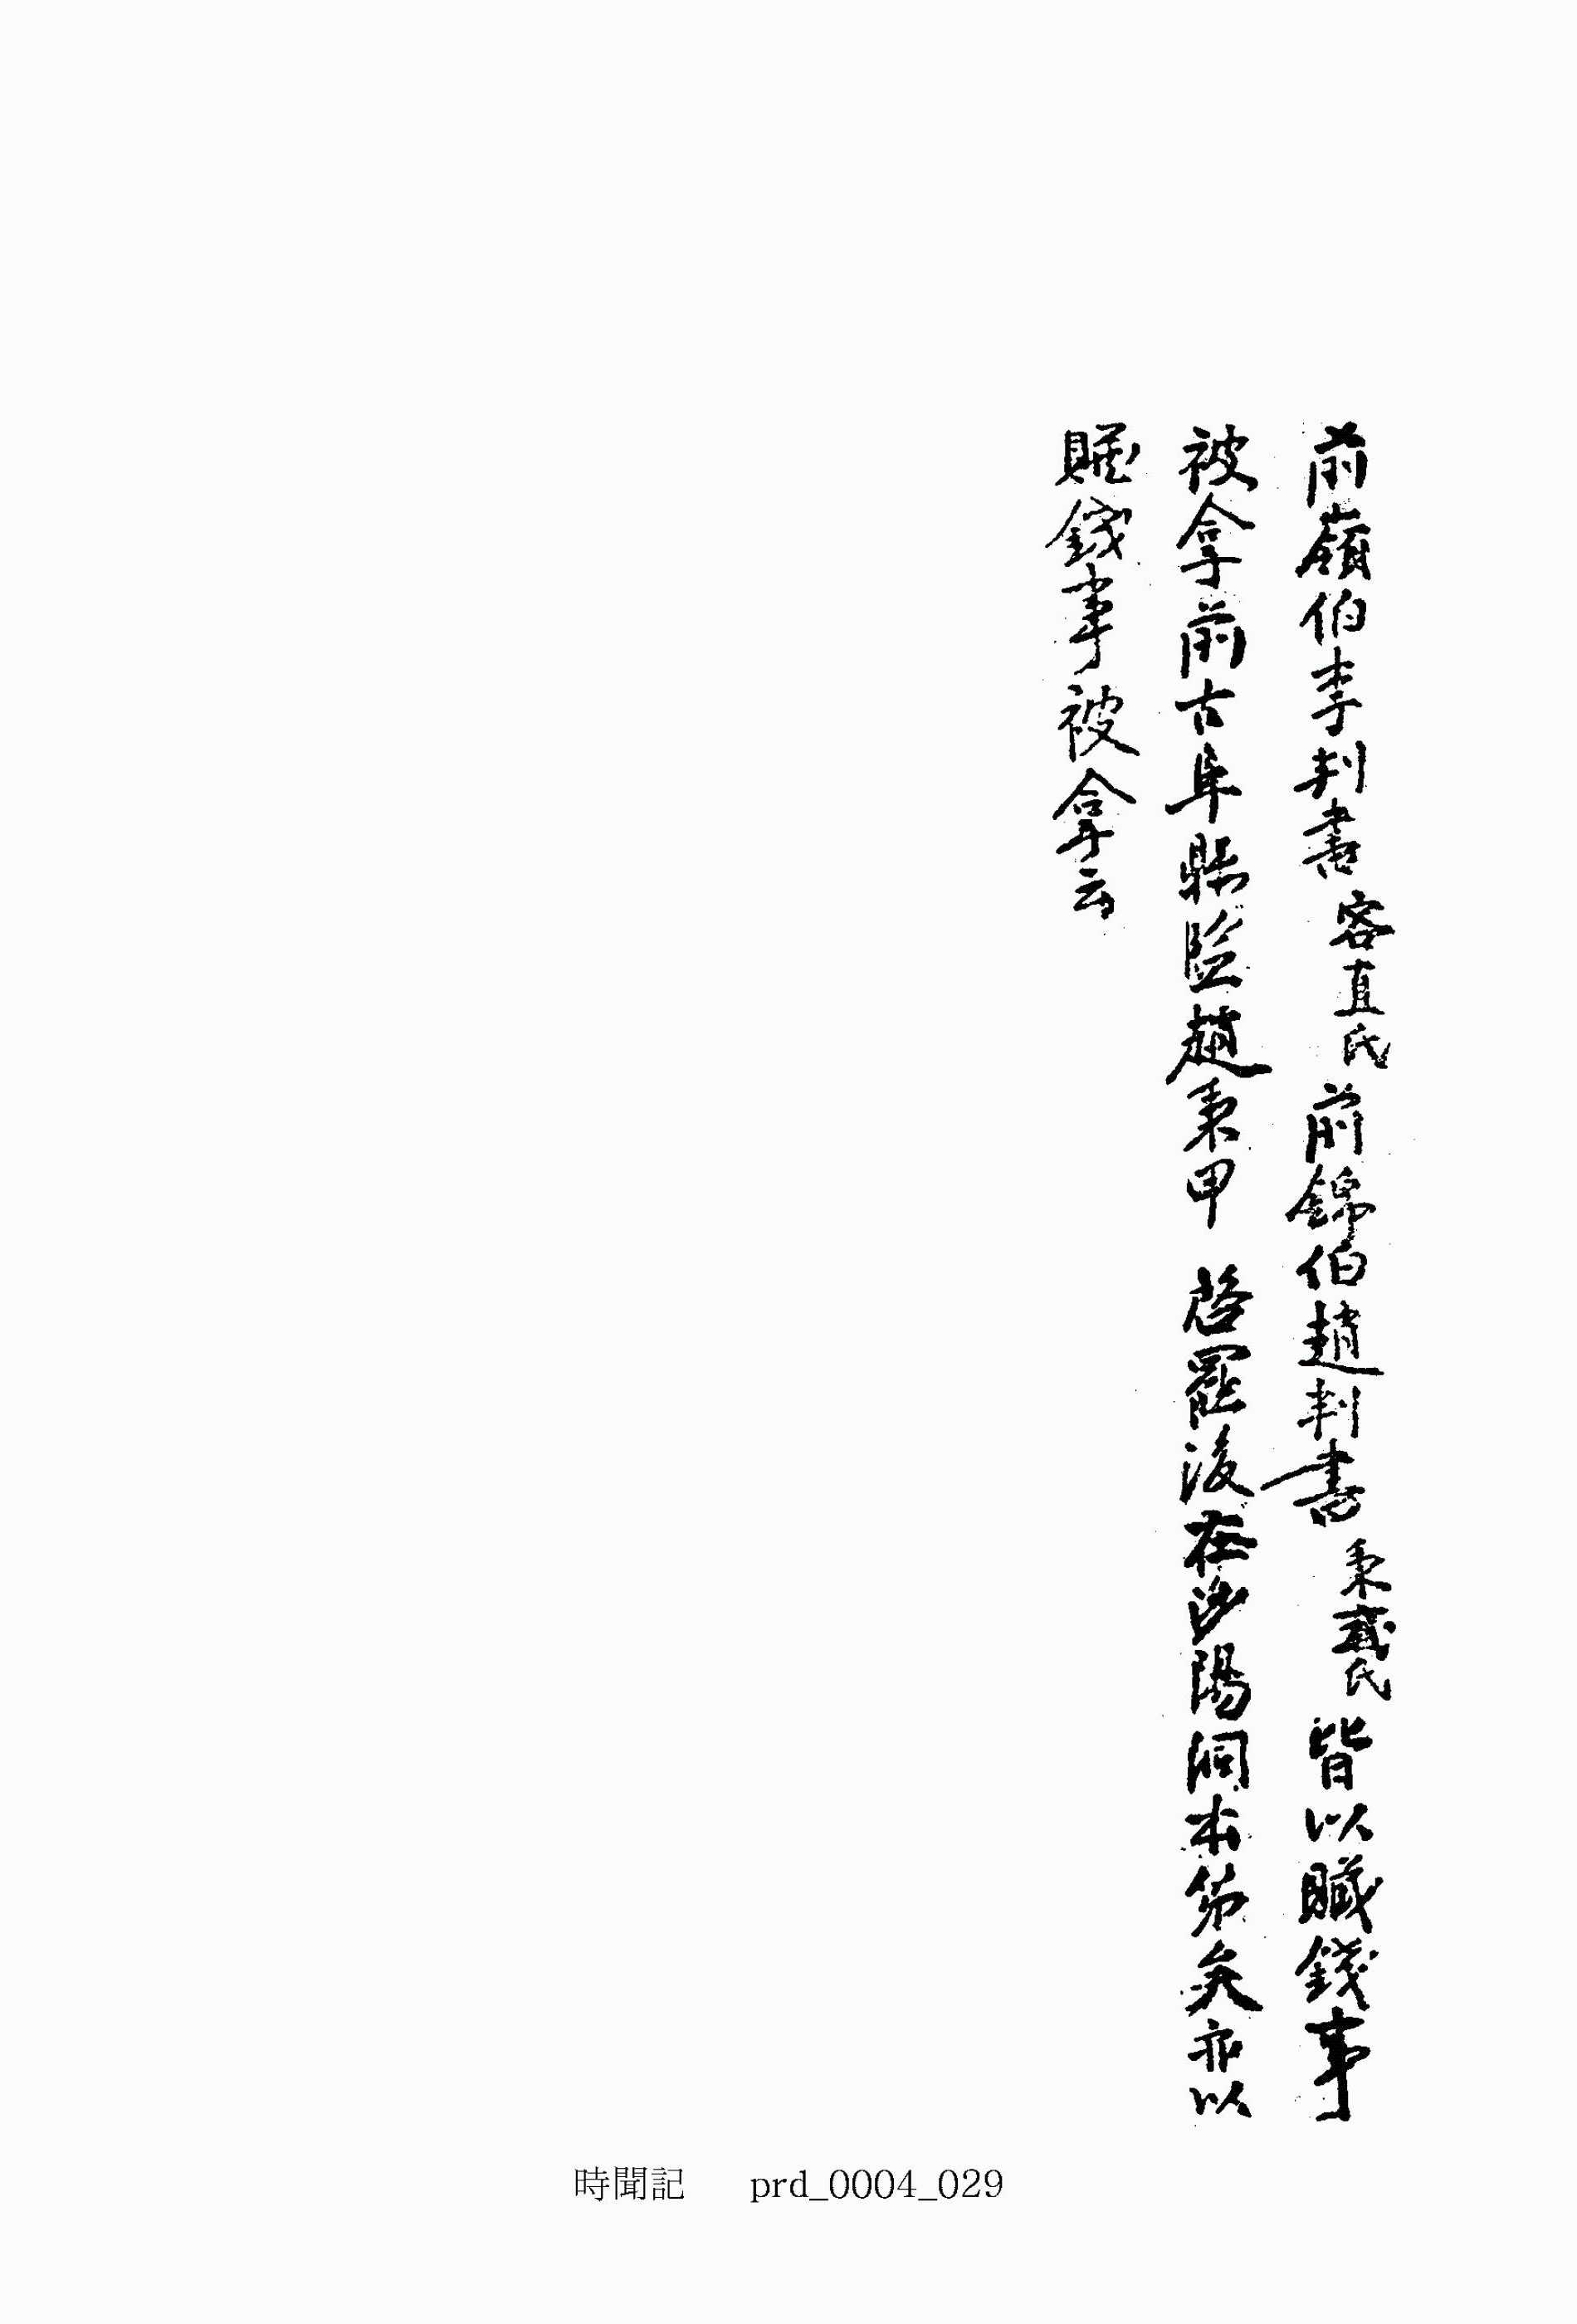 前嶺伯李判書容直氏前錦伯趙判書秉式氏皆以贓錢事
被拿前古阜縣監趙秉甲啓罷後在沙陽洞本第矣亦以
贓錢事被拿云
時聞記 prd_0004_029